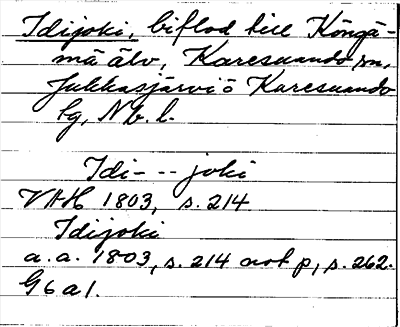 Idijoki, biflod till Köngä-
mä älv, Karesuando sn,
Jukkasjärvi o Karesuando
lg, Nb. l.
Idi- -- joki
VAH 1803, s. 214
Idijoki
a. a. 1803, s. 214 not p, s. 262.
G6a1.